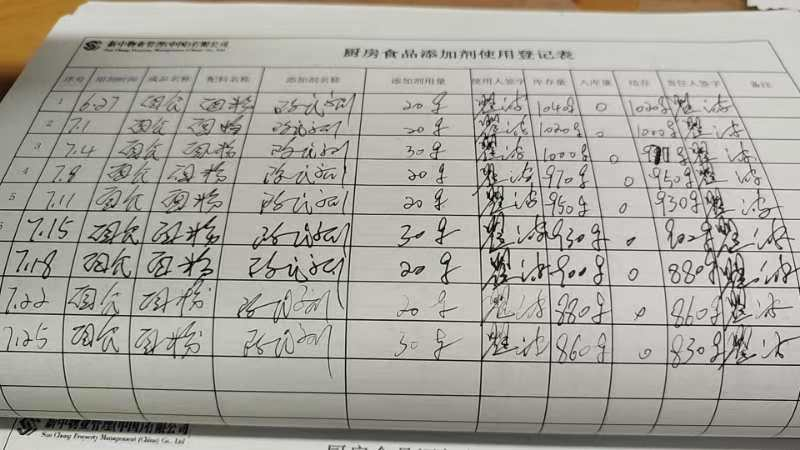 新中物业管理(中国)有限公司
Sun Chung Property Management (China) Co., Ltd
厨房食品添加剂使用登记表
序号 使用时间 成品名称 配料名称 添加剂名称 添加剂用量 使用人签字 库存量 入库量 结存 责任人签字 备注
1 6.27 面食 面粉 改良剂 20g 1040g 0 1020g
2 7.1 面食 面粉 改良剂 20g 1020g 0 1000g
3 7.4 面食 面粉 改良剂 30g 1000g 0
4 7.8 面食 面粉 改良剂 20g 970g 0 950g
5 7.11 面食 面粉 改良剂 20g 950g 0 930g
6 7.15 面食 面粉 改良剂 30g 930g 0 900g
7.18 面食 面粉 改良剂 20g 900g 0 880g
7.22 面食 面粉 改良剂 20g 880g 0 860g
7.25 面食 面粉 改良剂 30g 860g 0 830g
新中物业管理(中国)有限公司
Sun Chung Property Management (China) Co., Ltd